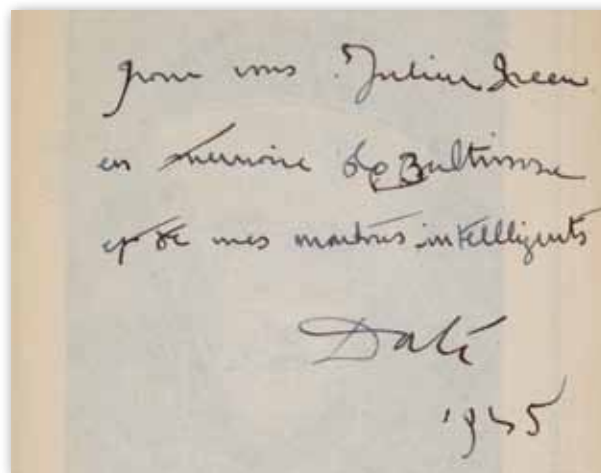 pour vous Julien Green
en memoire de Baltimore
et de mes intelligents
Dalí
1945